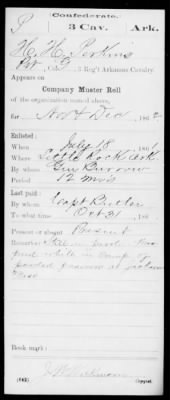 Confederate.
P 3 Cav. Ark.
H. H. Perkins
Pvt, Co. G, 3 Reg't Arkansas Cavalry.
Appears on
Company Muster Roll
of the organization named above,
for Nov & Dec, 1862.
Enlisted:
When July 18, 186
Where Little Rock Ark
By whom Guy Burrow
Period 12 mos
Last paid:
By whom Capt Butler
To what time Oct 31, 186
Present or absent Present
Remarks:
prisoners at
Book mark:
(642) Copyist.